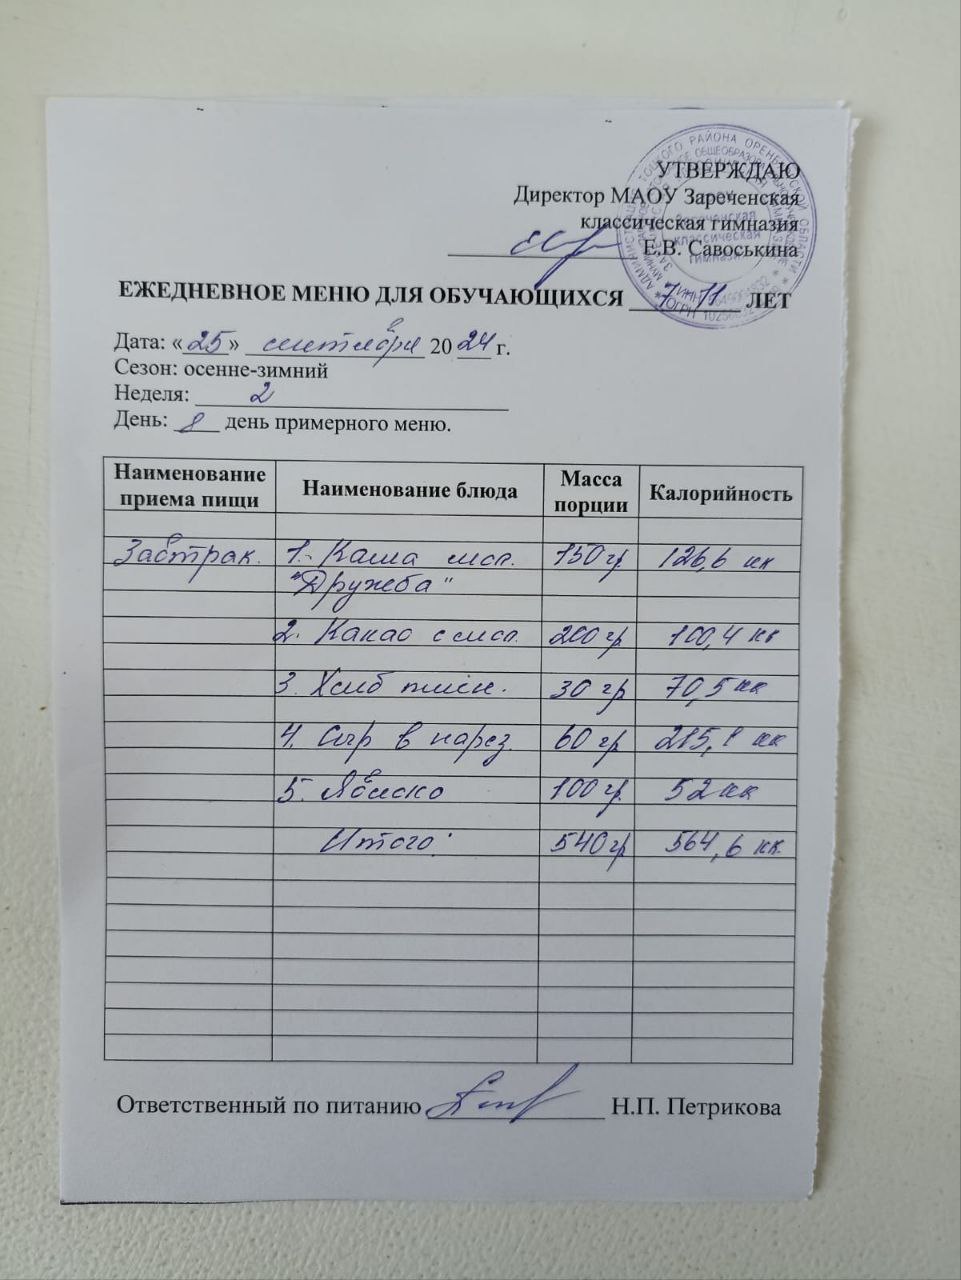 УТВЕРЖДАЮ
Директор МАОУ Зареченская
классическая гимназия
Е.В. Савоськина
ЕЖЕДНЕВНОЕ МЕНЮ ДЛЯ ОБУЧАЮЩИХСЯ 7-11 ЛЕТ
Дата: «25» сентября 2024 г.
Сезон: осенне-зимний
Неделя: 2
День: 8 день примерного меню.
Наименование приема пищи Наименование блюда Масса порции Калорийность
Завтрак. 1. Каша мол. 150 гр 126,6 кк
"Дружеба"
2. Какао с мол. 200 гр 100,4 кк
3. Хлеб пшен. 30 гр 70,5 кк
4. Сыр в нарез. 60 гр 215,1 кк
5. Яблоко 100 гр. 52 кк
Итого: 540 гр 564,6 кк.
Ответственный по питанию Н.П. Петрикова